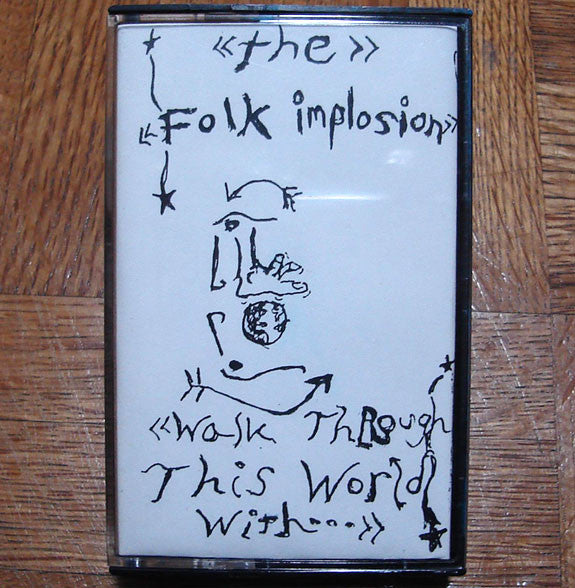 «the»
«Folk implosion»
«Walk Through
This World
With...»